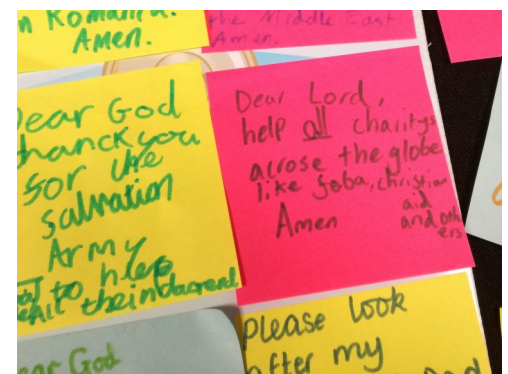 n Romania.
Amen.
the Middle East
Amen.
Dear God
thanckyou
for the
salvation
Army
to help
all the
Dear Lord,
help all charitys
acrose the globe
like Joba, christian
aid
and oth
ers
Amen
ear God
please look
after my